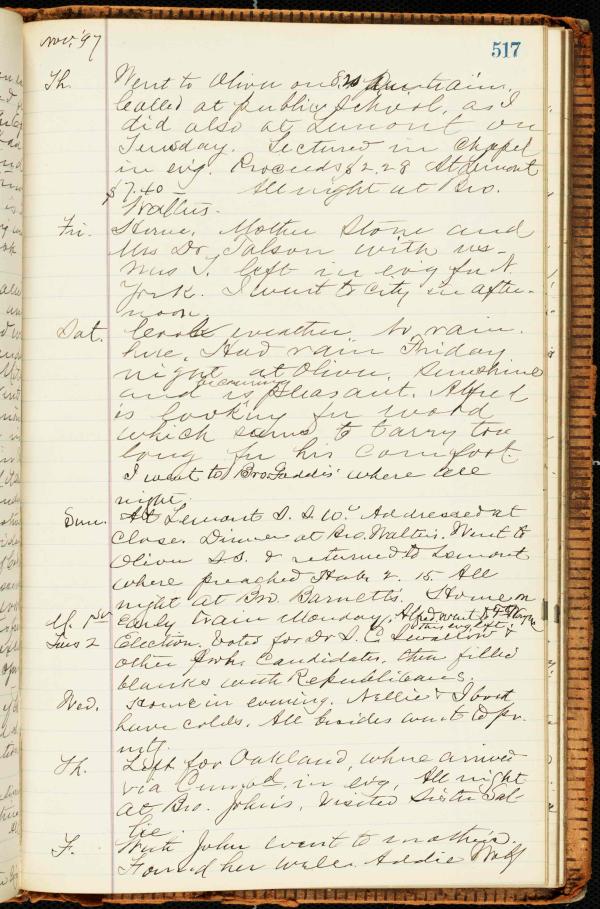 Nov, '97
517
Th. Went to Oliver on 8.20 trains.
Called at public school, as I
did also at Lemont on
Tuesday. Lectured in chapel
in ev'g. Proceeds $2.28 At Lemont
$7.40 — All night at Bro.
Walters.
Fri. Home. Mother Stone and
Mrs Dr Tolson with us—
Mrs T. left in ev'g for N.
York. I went to city in after-
noon.
Sat. Cool weather No rain
here, Had rain Friday
night at Oliver. Sunshine
and is pleasant. Alfred
is looking for word
which seems to tarry too
long for his comfort.
I went to Bro Gaddis' where all
night.
Sun. At Lemont S. S. Addressed at
close. Dinner at Bro. Walters. Went to
Oliver S.S. & returned to Lemont
where preached Hab. 2. 15. All
night at Bro Barnetts. Home on
M. 1st early train Monday. Alfred went to
this ev'g left
Tues 2 Election, Voted for Dr S. C. Swallow &
other Proh. Candidates, then filled
blanks with Republicans.
Wed. Home in evening. Nellie & I both
have colds. All besides went to pr.
mtg.
Th. Left for Oakland, where arrived
via in ev'g, All night
at Bro. John's, Visited Sister Sal-
lie.
F. With John went to mother's.
Found her well. Addie Wolf